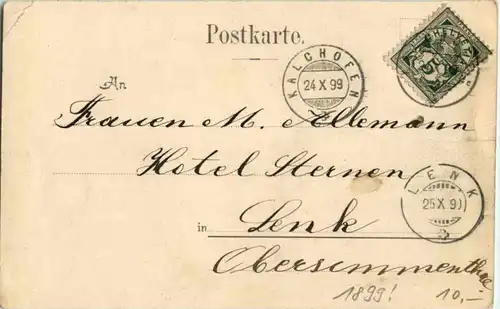 Postkarte.
An
KALCHOFEN
24 X 99
HELVETIA
5
Frauen M. Allemann
Hotel Sternen
LENK
25 X 9
in Lenk
Obersimmenthal.
1899! 10,—